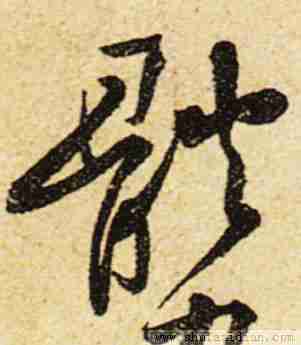 體
www.shufazidian.com